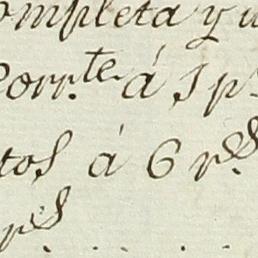 ompleta y u
Porr.te á 5 p.
tos á 6 r.s
r.s